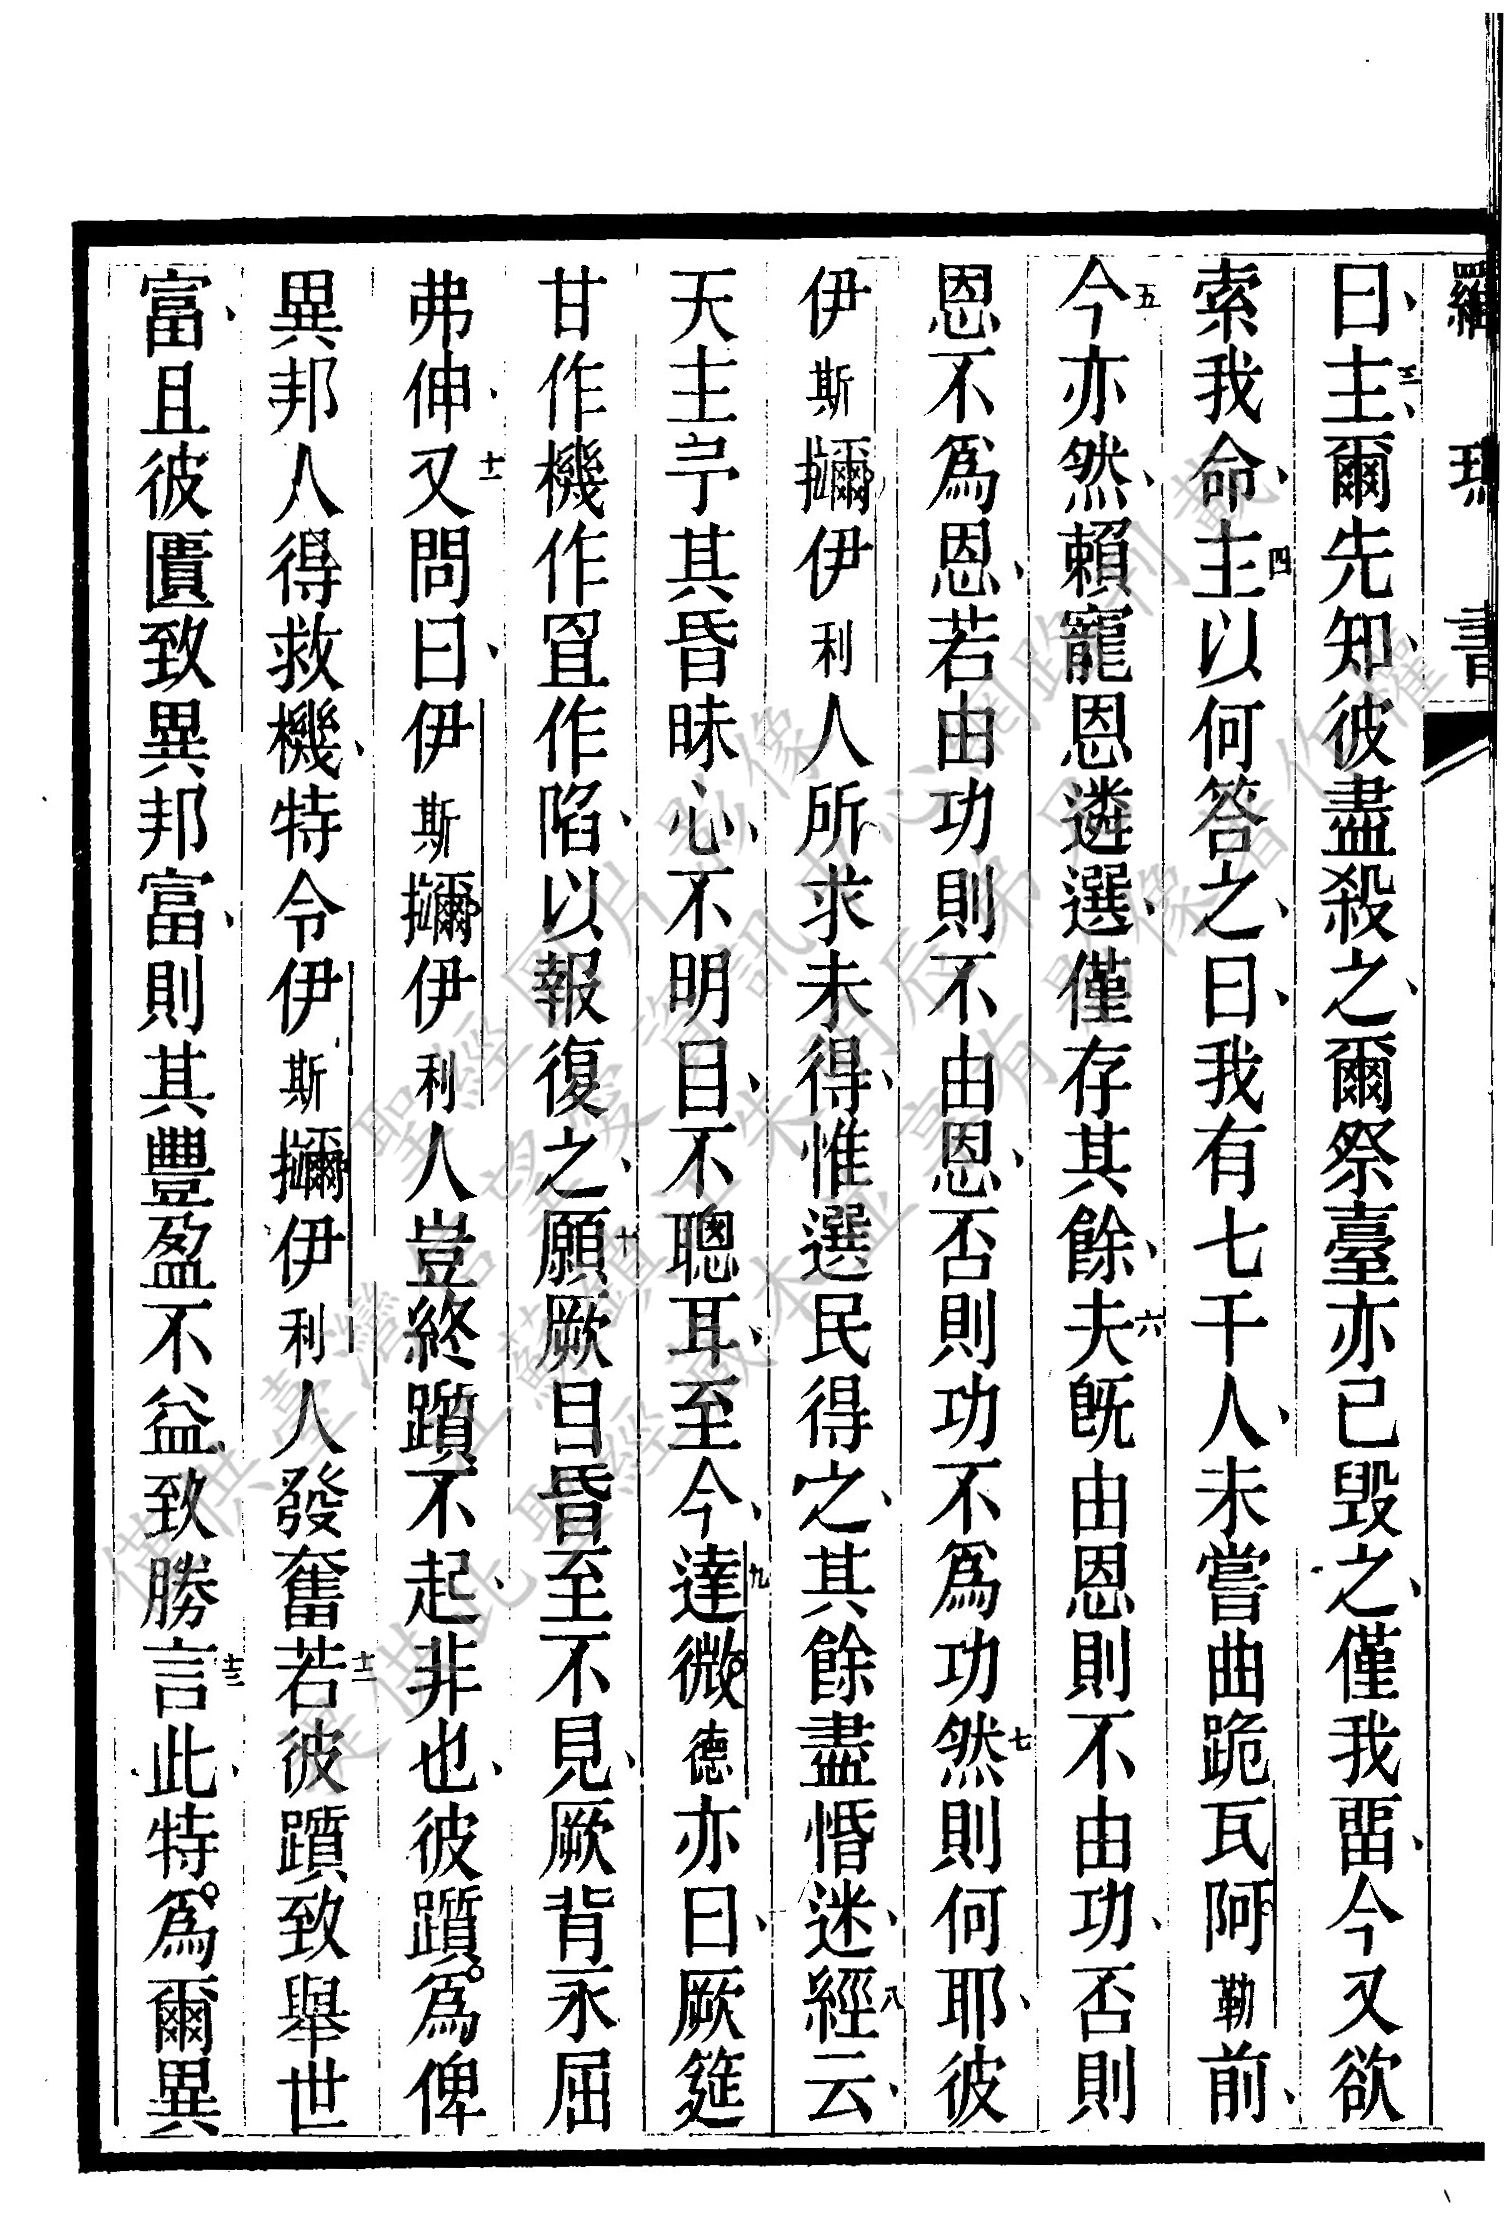 羅瑪書
曰、主三、爾先知、彼盡殺之、爾祭臺亦已毀之、僅我畱、今又欲
索我命、主四以何答之、曰、我有七千人、未嘗曲跪瓦阿勒前、
今五亦然、賴寵恩遴選、僅存其餘、夫六旣由恩則不由功、否則
恩不爲恩、若由功則不由恩、否則功不爲功、然七則何耶、彼
伊斯擟伊利人所求未得、惟選民得之、其餘盡惛迷、經八云、
天主予其昏昧心、不明目、不聰耳、至今、達九微德亦曰、厥筵
甘作機作罝作陷、以報復之、願十厥目昏至不見、厥背永屈
弗伸、又十一問曰、伊斯擟伊利人豈終躓不起、非也、彼躓爲俾
異邦人得救機、特令伊斯擟伊利人發奮、若十二彼躓致舉世
富、且彼匱致異邦富、則其豐盈不益致勝、言十三此、特爲爾異